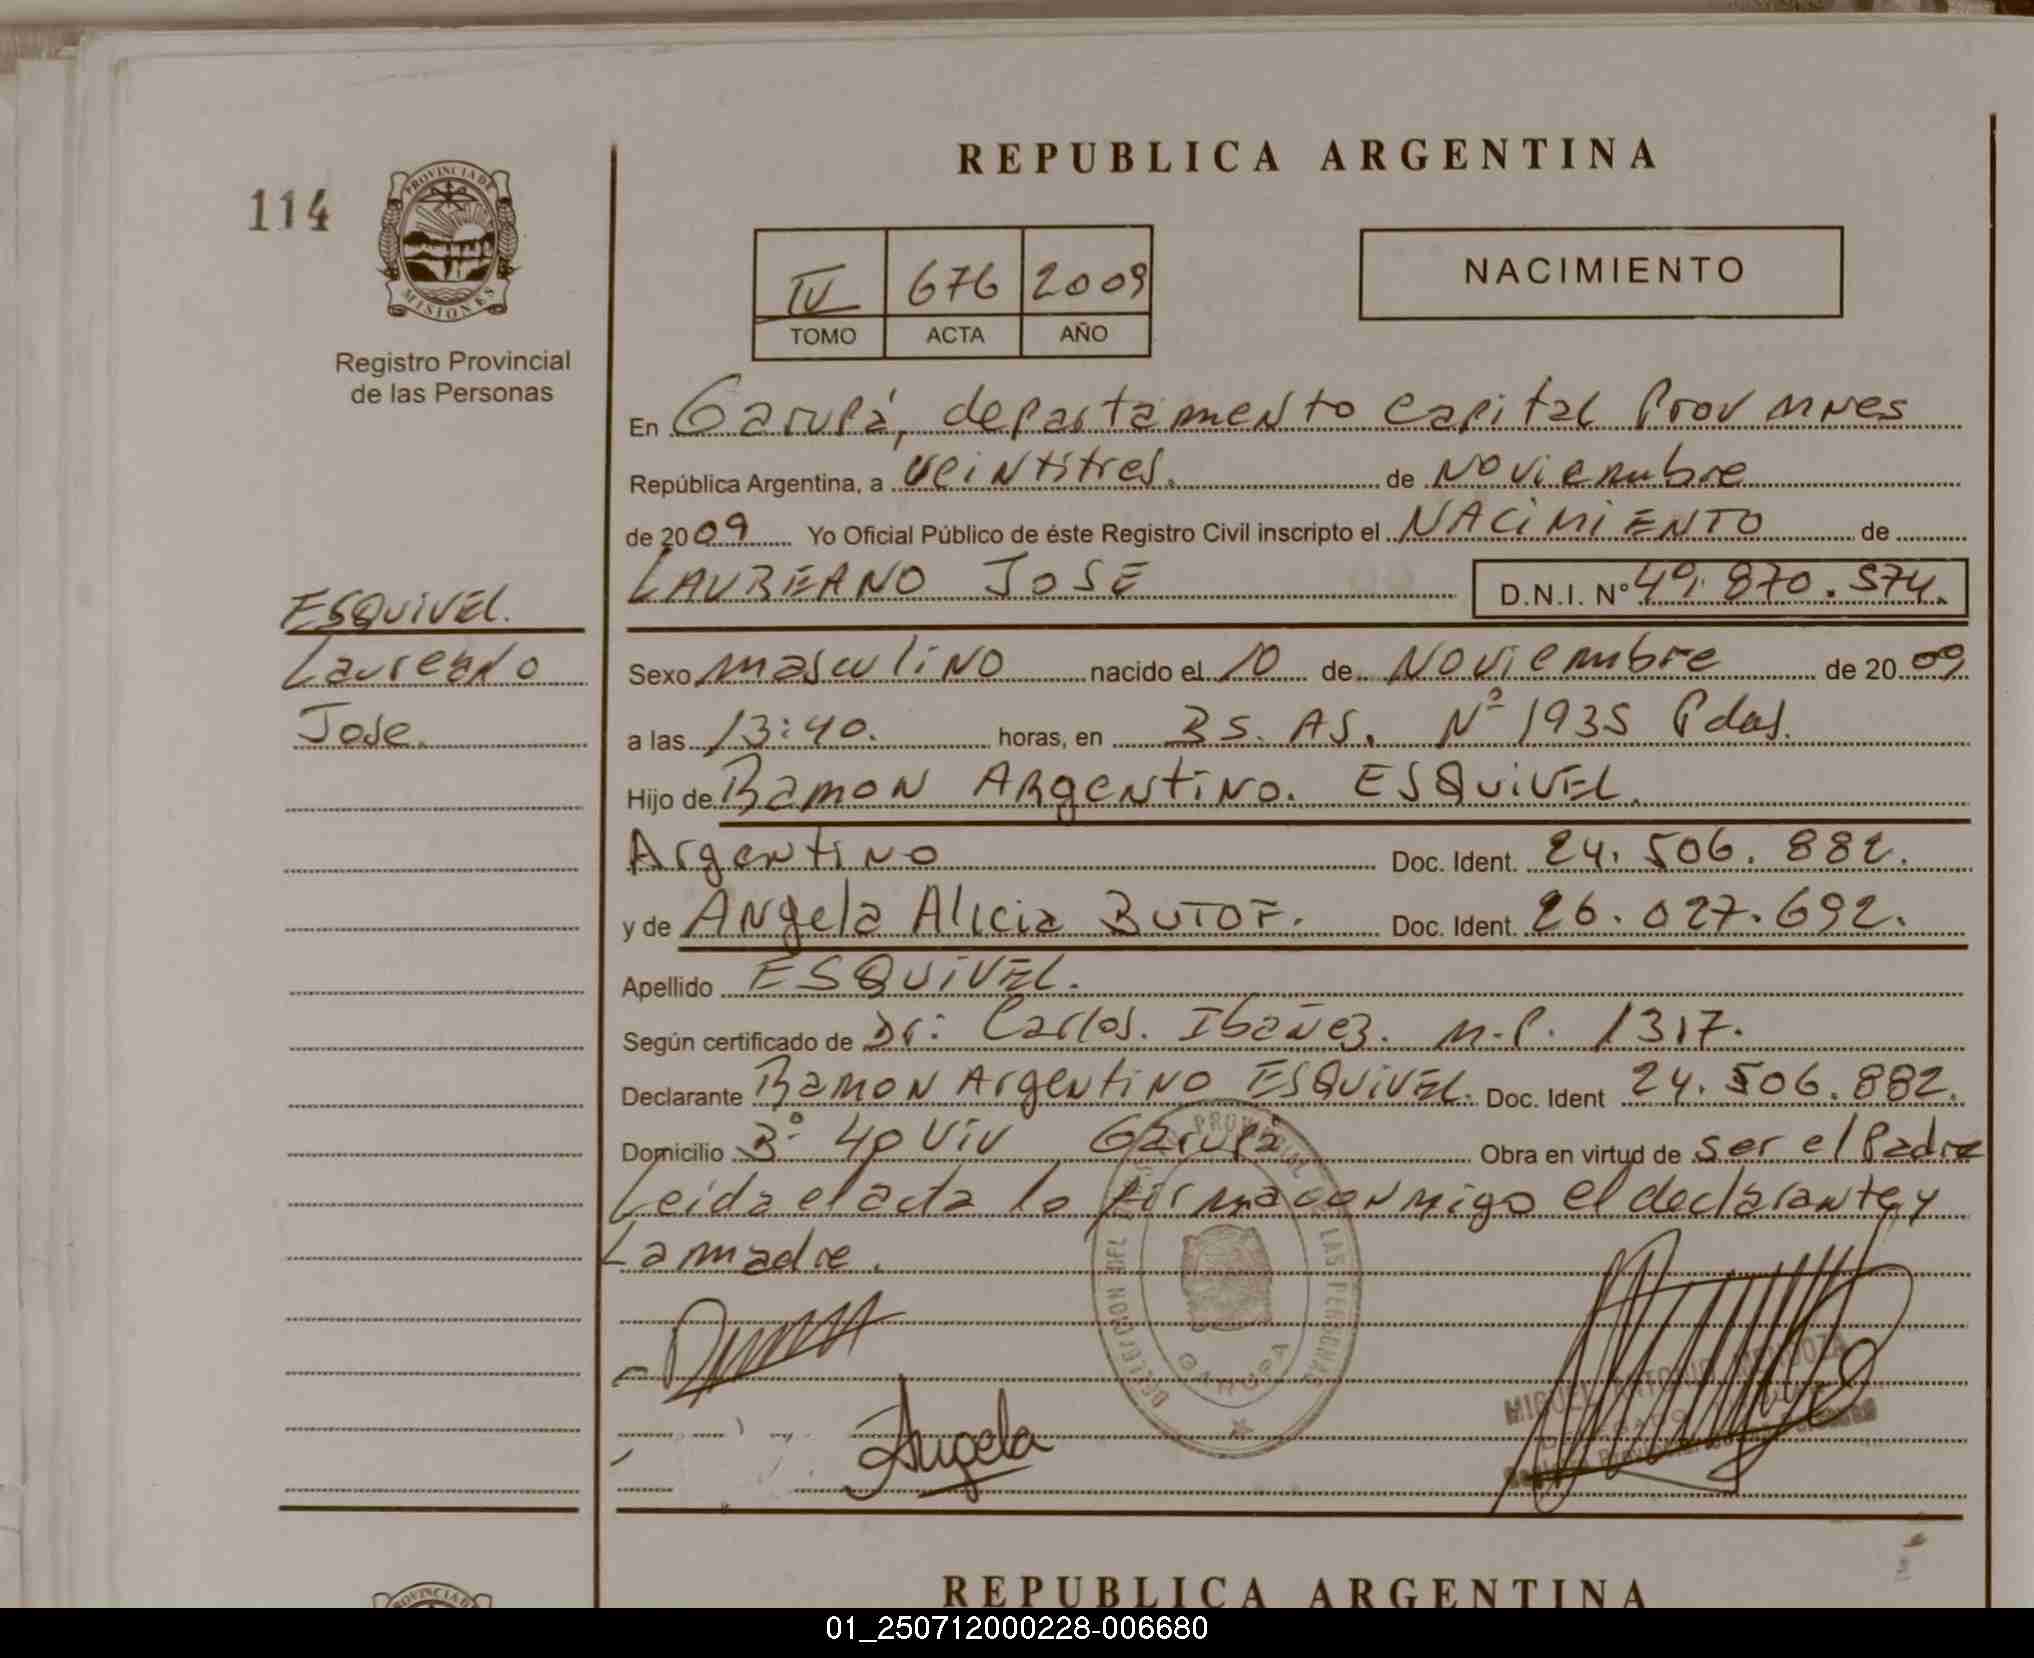 REPUBLICA ARGENTINA
114
PROVINCIA DE
MISIONES
Registro Provincial
de las Personas
IV 676 2009
TOMO ACTA AÑO
NACIMIENTO
En Garupá, departamento capital Prov Mnes
República Argentina, a veintitres. de Noviembre
de 2009 Yo Oficial Público de éste Registro Civil inscripto el NACIMIENTO de
LAUREANO JOSE D.N.I. Nº 49.870.574.
ESQUIVEL.
Laureano
Jose.
Sexo masculino nacido el 10 de Noviembre de 2009
a las 13:40. horas, en BS. AS. Nº 1935 Pdas.
Hijo de Ramon Argentino. ESQUIVEL.
Argentino Doc. Ident. 24.506.882.
y de Angela Alicia BUTOF. Doc. Ident. 26.027.692.
Apellido ESQUIVEL.
Según certificado de Dr: Carlos. Ibañez. M.P. 1317.
Declarante Ramon Argentino ESQUIVEL. Doc. Ident 24.506.882.
Domicilio Bº 40 Viv Garupá Obra en virtud de ser el Padre
Leida el acta lo firma conmigo el declarante y
La madre.
DELEGACION DEL PROVINCIAL DE LAS PERSONAS
GARUPA
MIGUEL ANTONIO MENDOZA
Angela
REPUBLICA ARGENTINA
PROVINCIA DE
01_250712000228-006680